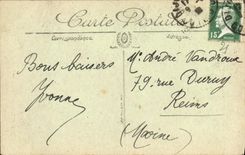 Carte Postale
Correspondance
Adresse
15
Bons baisers
Yvonne
Mr André Vandroux
79 rue Duruy
Reims
(Marne)